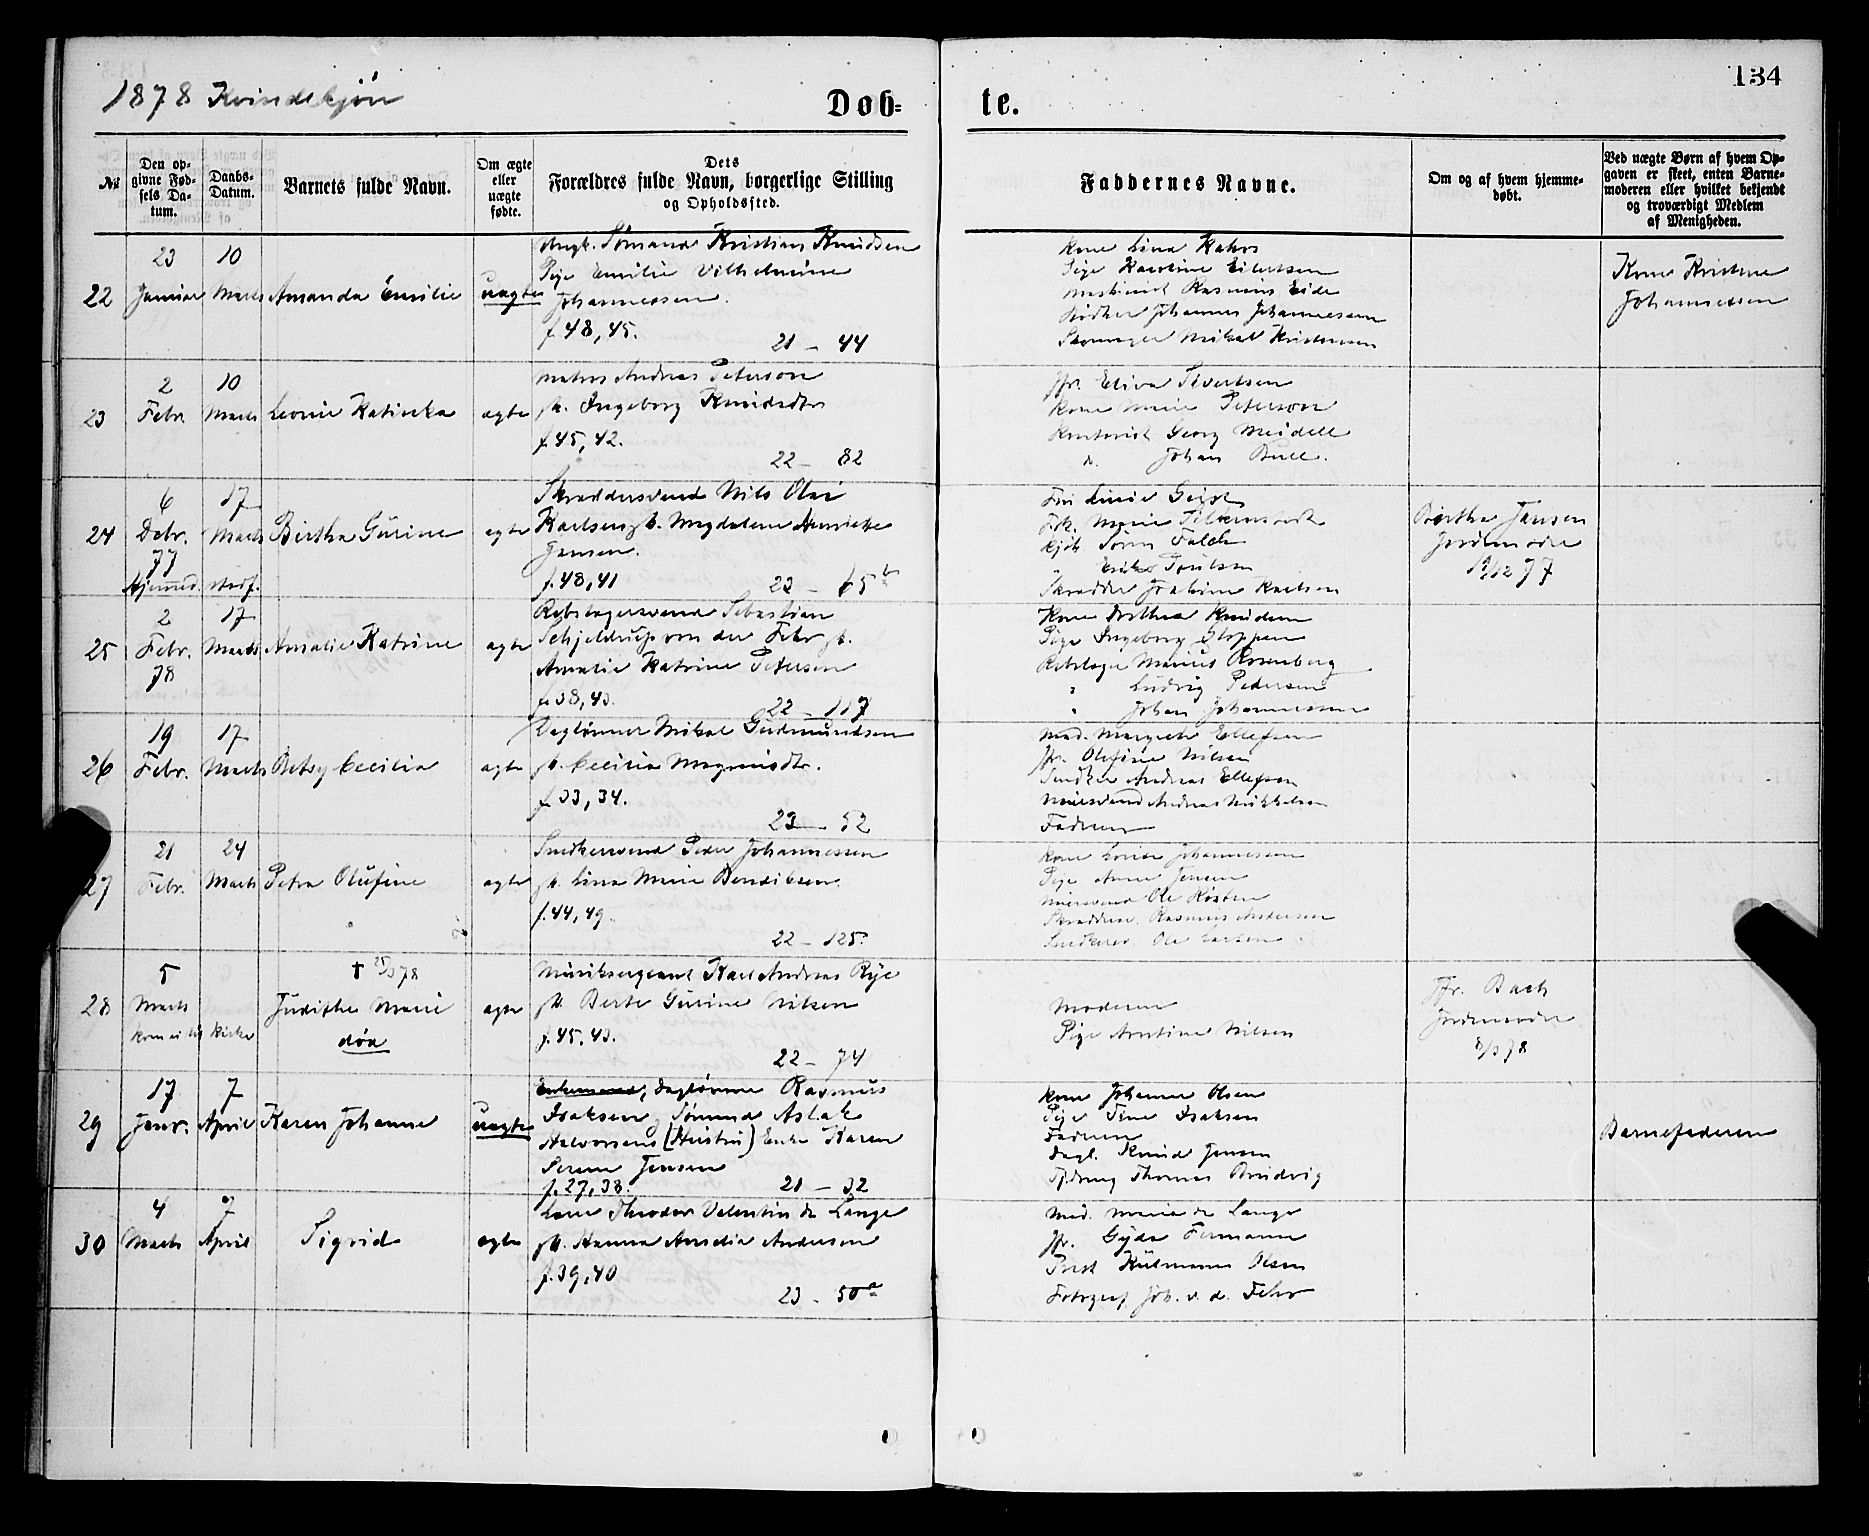 1878 Kvindekjøn
Døb=
te.
134
No
Den opgivne Fødsels Datum.
Daabs-Datum.
Barnets fulde Navn.
Om ægte eller uægte fødte.
Dets Forældres fulde Navn, borgerlige Stilling og Opholdssted.
Faddernes Navne.
Om og af hvem hjemmedøbt.
Ved uægte Børn af hvem Opgaven er skeet, enten Barnemoderen eller hvilket bekjendt og troværdigt Medlem af Menigheden.
22
23 Januar
10 Marts
Amanda Emilie
uægte
Ungk. Sømand Kristian Knudsen
Pige Emilie Vilhelmine
Johannessen.
f. 48, 45.
21 - 44
Kone Lina
Pige Karoline Eilertsen
Maskinist Rasmus Eide
Bødker Johannes Johannessen
Skomager Mikal Kristensen
Kone Kristine
Johannessen
23
2 Febr.
10 Marts
Leonie Katinka
ægte
Matros Andreas Peterson
Ingeborg Knudsdtr
f. 45, 42.
22 - 82
Jfr. Elisa Sivertsen
Kone Marie Peterson
Kontorist Georg Meidell
Johan Bull.
24
6 Debr. 77
17 Marts
Hjemmed. stadf.
Birtha Gurine
ægte
Skræddersvend Nils Olai
Karlsen Magdalene Henriette
Jansen.
f. 48, 41
23 - 65 b
Marie
Kjøb. Søren Falck
Skrædder Joakim Karlsen
Birtha Jansen
Jordemoder
77
25
2 Febr. 78
17 Marts
Amalie Katrine
ægte
Rebslagersvend Sebastian
Schjeldrup von der Fehr
Amalie Katrine Petersen
f. 38, 43.
22 - 117
Kone Dorthea Knudsen
Pige Ingeborg Gloppen
Rebslager Marius Rosenberg
" Ludvig Pedersen
" Johan Johannessen
26
19 Febr.
17 Marts
Betsy Cecilia
ægte
Daglønner Mikal Gudmundsen
Cecilia Magnusdtr.
f. 33, 34.
23 - 52
Mad. Margrete Ellefsen
Jfr. Olufine Nilsen
Snedker Andreas Ellefsen
Murersvend Andreas Mikkelsen
Faderen
27
21 Febr.
24 Marts
Petra Olufine
ægte
Snedkersvend Peder Johannessen
Lina Marie Bendiksen.
f. 44, 49.
22 - 125.
Kone Lovise Johannessen
Pige Anne Jensen
Murersvend Ole
Skræddersv. Rasmus Andersen
Snedkersv. Ole Larsen
28
5 Marts
kom ei til Kirke
† 25/3 78
Judithe Marie
død
ægte
Musiksergeant Karl Andreas Rye
Berte Gurine Nilsen
f. 45, 43.
22 - 74
Moderen
Pige Nilsen
Jfr. Bach
Jordemoder
8/3 78
29
17 Janr.
7 April
Karen Johanne
uægte
Enkemand, Daglønner Rasmus
Isaksen, Sømand Aslak
Halvorsens (Hustru) Enke Karen
Serene Jensen
f. 27, 38.
21 - 32
Kone Johanne Olsen
Pige Tine Isaksen
Faderen
Dagl. Knud Jensen
Thomas
Barnefaderen
30
4 Marts
7 April
Sigrid
ægte
Theodor Valentin de Lange
Hanna Amalia Andersen
f. 39, 40
23 - 50 a
Mad. Maria de Lange
Jfr. Gyda
Olsen
Fotograf Joh. v. d. Fehr